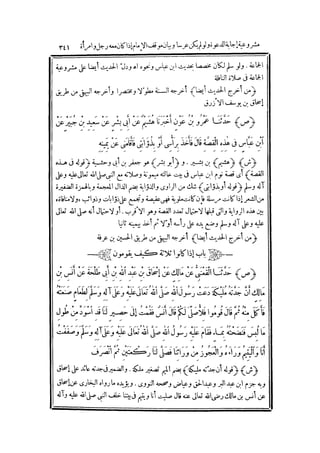 مشروعية إجابة الدعوة ولو لم يكن عرسا وبيان موقف الإمام إذا كان معه رجل وامرأة ٣٤١
الجماعة . ولو سلم لكان مخصصا بحديث ابن عباس ونحوه اه ودل الحديث أيضا على مشروعية
الجماعة فى صلاة النافلة
﴿من أخرج الحديث أيضا﴾ أخرجه الستة مطولا ومختصرا وأخرجه البيهقى من طريق
إسحاق بن يوسف الأزرق
﴿ص﴾ حَدَّثَنَا عَمْرُو بْنُ عَوْنٍ أَخْبَرَنَا هُشَيْمٌ عَنْ أَبِى بِشْرٍ عَنْ سَعِيدِ بْنِ جُبَيْرٍ عَنِ
ابْنِ عَبَّاسٍ فِى هٰذِهِ الْقِصَّةِ قَالَ فَأَخَذَ بِرَأْسِى أَوْ بِذُؤَابَتِى فَأَقَامَنِى عَنْ يَمِينِهِ
﴿ش﴾ ﴿هشيم﴾ بن بشير . و﴿أبو بشر﴾ هو جعفر بن أبى وحشية ﴿قوله فى هذه
القصة﴾ أى قصة نوم ابن عباس فى بيت خالته ميمونة وصلاته مع النبى صلى الله تعالى عليه وعلى
آله وسلم ﴿قوله أو بذؤابتى﴾ شك من الراوى والذؤابة بضم الذال المعجمة وبالهمزة الضفيرة
من الشعر إذا كانت مرسلة فإن كانت ملوية فهى عقيصة وتجمع على ذؤابات وذوائب . ولا منافاة
بين هذه الرواية والتى قبلها لاحتمال تعدد القصة وهو الأقرب . أو لاحتمال أنه صلى الله تعالى
عليه وعلى آله وسلم وضع يده على رأسه أولا ثم أخذ بيمينه ثانيا
﴿من أخرج الحديث أيضا﴾ أخرجه البيهقى من طريق الحسين بن عرفة
باب إذا كانوا ثلاثة كيف يقومون
﴿ص﴾ حَدَّثَنَا الْقَعْنَبِىُّ عَنْ مَالِكٍ عَنْ إِسْحَاقَ بْنِ عَبْدِ اللهِ بْنِ أَبِى طَلْحَةَ عَنْ أَنَسِ بْنِ
مَالِكٍ أَنَّ جَدَّتَهُ مُلَيْكَةَ دَعَتْ رَسُولَ اللهِ صَلَّى اللهُ تَعَالَى عَلَيْهِ وَعَلَى آلِهِ وَسَلَّمَ لِطَعَامٍ صَنَعَتْهُ
فَأَكَلَ مِنْهُ ثُمَّ قَالَ قُومُوا فَلِأُصَلِّىَ لَكُمْ قَالَ أَنَسٌ فَقُمْتُ إِلَى حَصِيرٍ لَنَا قَدِ اسْوَدَّ مِنْ طُولِ
مَا لُبِسَ فَنَضَحْتُهُ بِمَاءٍ فَقَامَ عَلَيْهِ رَسُولُ اللهِ صَلَّى اللهُ تَعَالَى عَلَيْهِ وَعَلَى آلِهِ وَسَلَّمَ وَصَفَفْتُ
أَنَا وَالْيَتِيمُ وَرَاءَهُ وَالْعَجُوزُ مِنْ وَرَائِنَا فَصَلَّى لَنَا رَكْعَتَيْنِ ثُمَّ انْصَرَفَ
﴿ش﴾ ﴿قوله أن جدته مليكة﴾ بضم الميم تصغير ملكة . والضمير فى جدته عائد على إسحاق
وبه جزم ابن عبد البر وعبد الحق وعياض وصححه النووى . ويؤيده ما رواه البخارى عن إسحاق
عن أنس بن مالك رضى الله تعالى عنه قال صليت أنا ويتيم فى بيتنا خلف النبى صلى الله عليه وآله